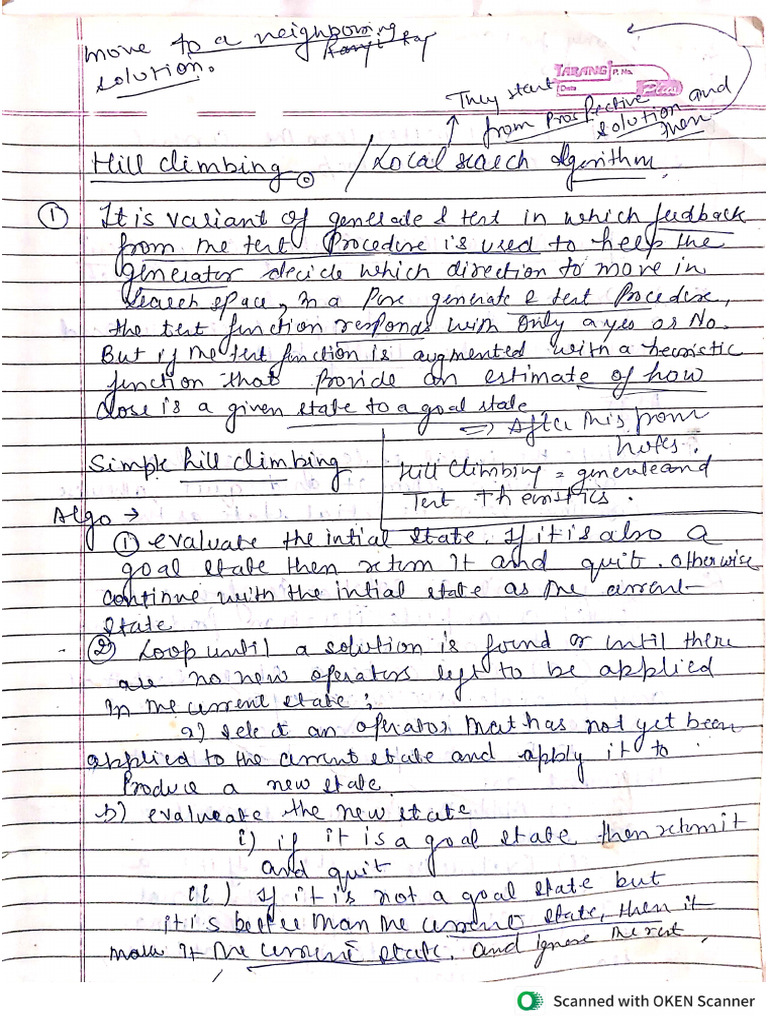 move to a neighboring
solution.
TARANG P. No.
Date
They start
from Prospective
solution and
then
Hill climbing / Local search Algorithm
① It is variant of generate & test in which feedback
from the test Procedure is used to help the
generator decide which direction to move in
search space, In a Pure generate & test Procedure,
the test function responds with only a yes or No.
But if the test function is augmented with a heuristic
function that Provide an estimate of how
close is a given state to a goal state
⇒ After this from
notes.
Simple hill climbing
Hill Climbing = generate and
Test + Heuristics.
Algo →
① evaluate the intial state. If it is also a
goal state then return it and quit. otherwise
continue with the intial state as the current
state
② Loop until a solution is found or until there
are no new operators left to be applied
In the current state:
a) select an operator that has not yet been
applied to the current state and apply it to
Produce a new state.
b) evalueate the new state
i) if it is a goal state then return it
and quit
ii) If it is not a goal state but
it is better than the current state, then it
make it the current state. and Ignore the rest.
Scanned with OKEN Scanner